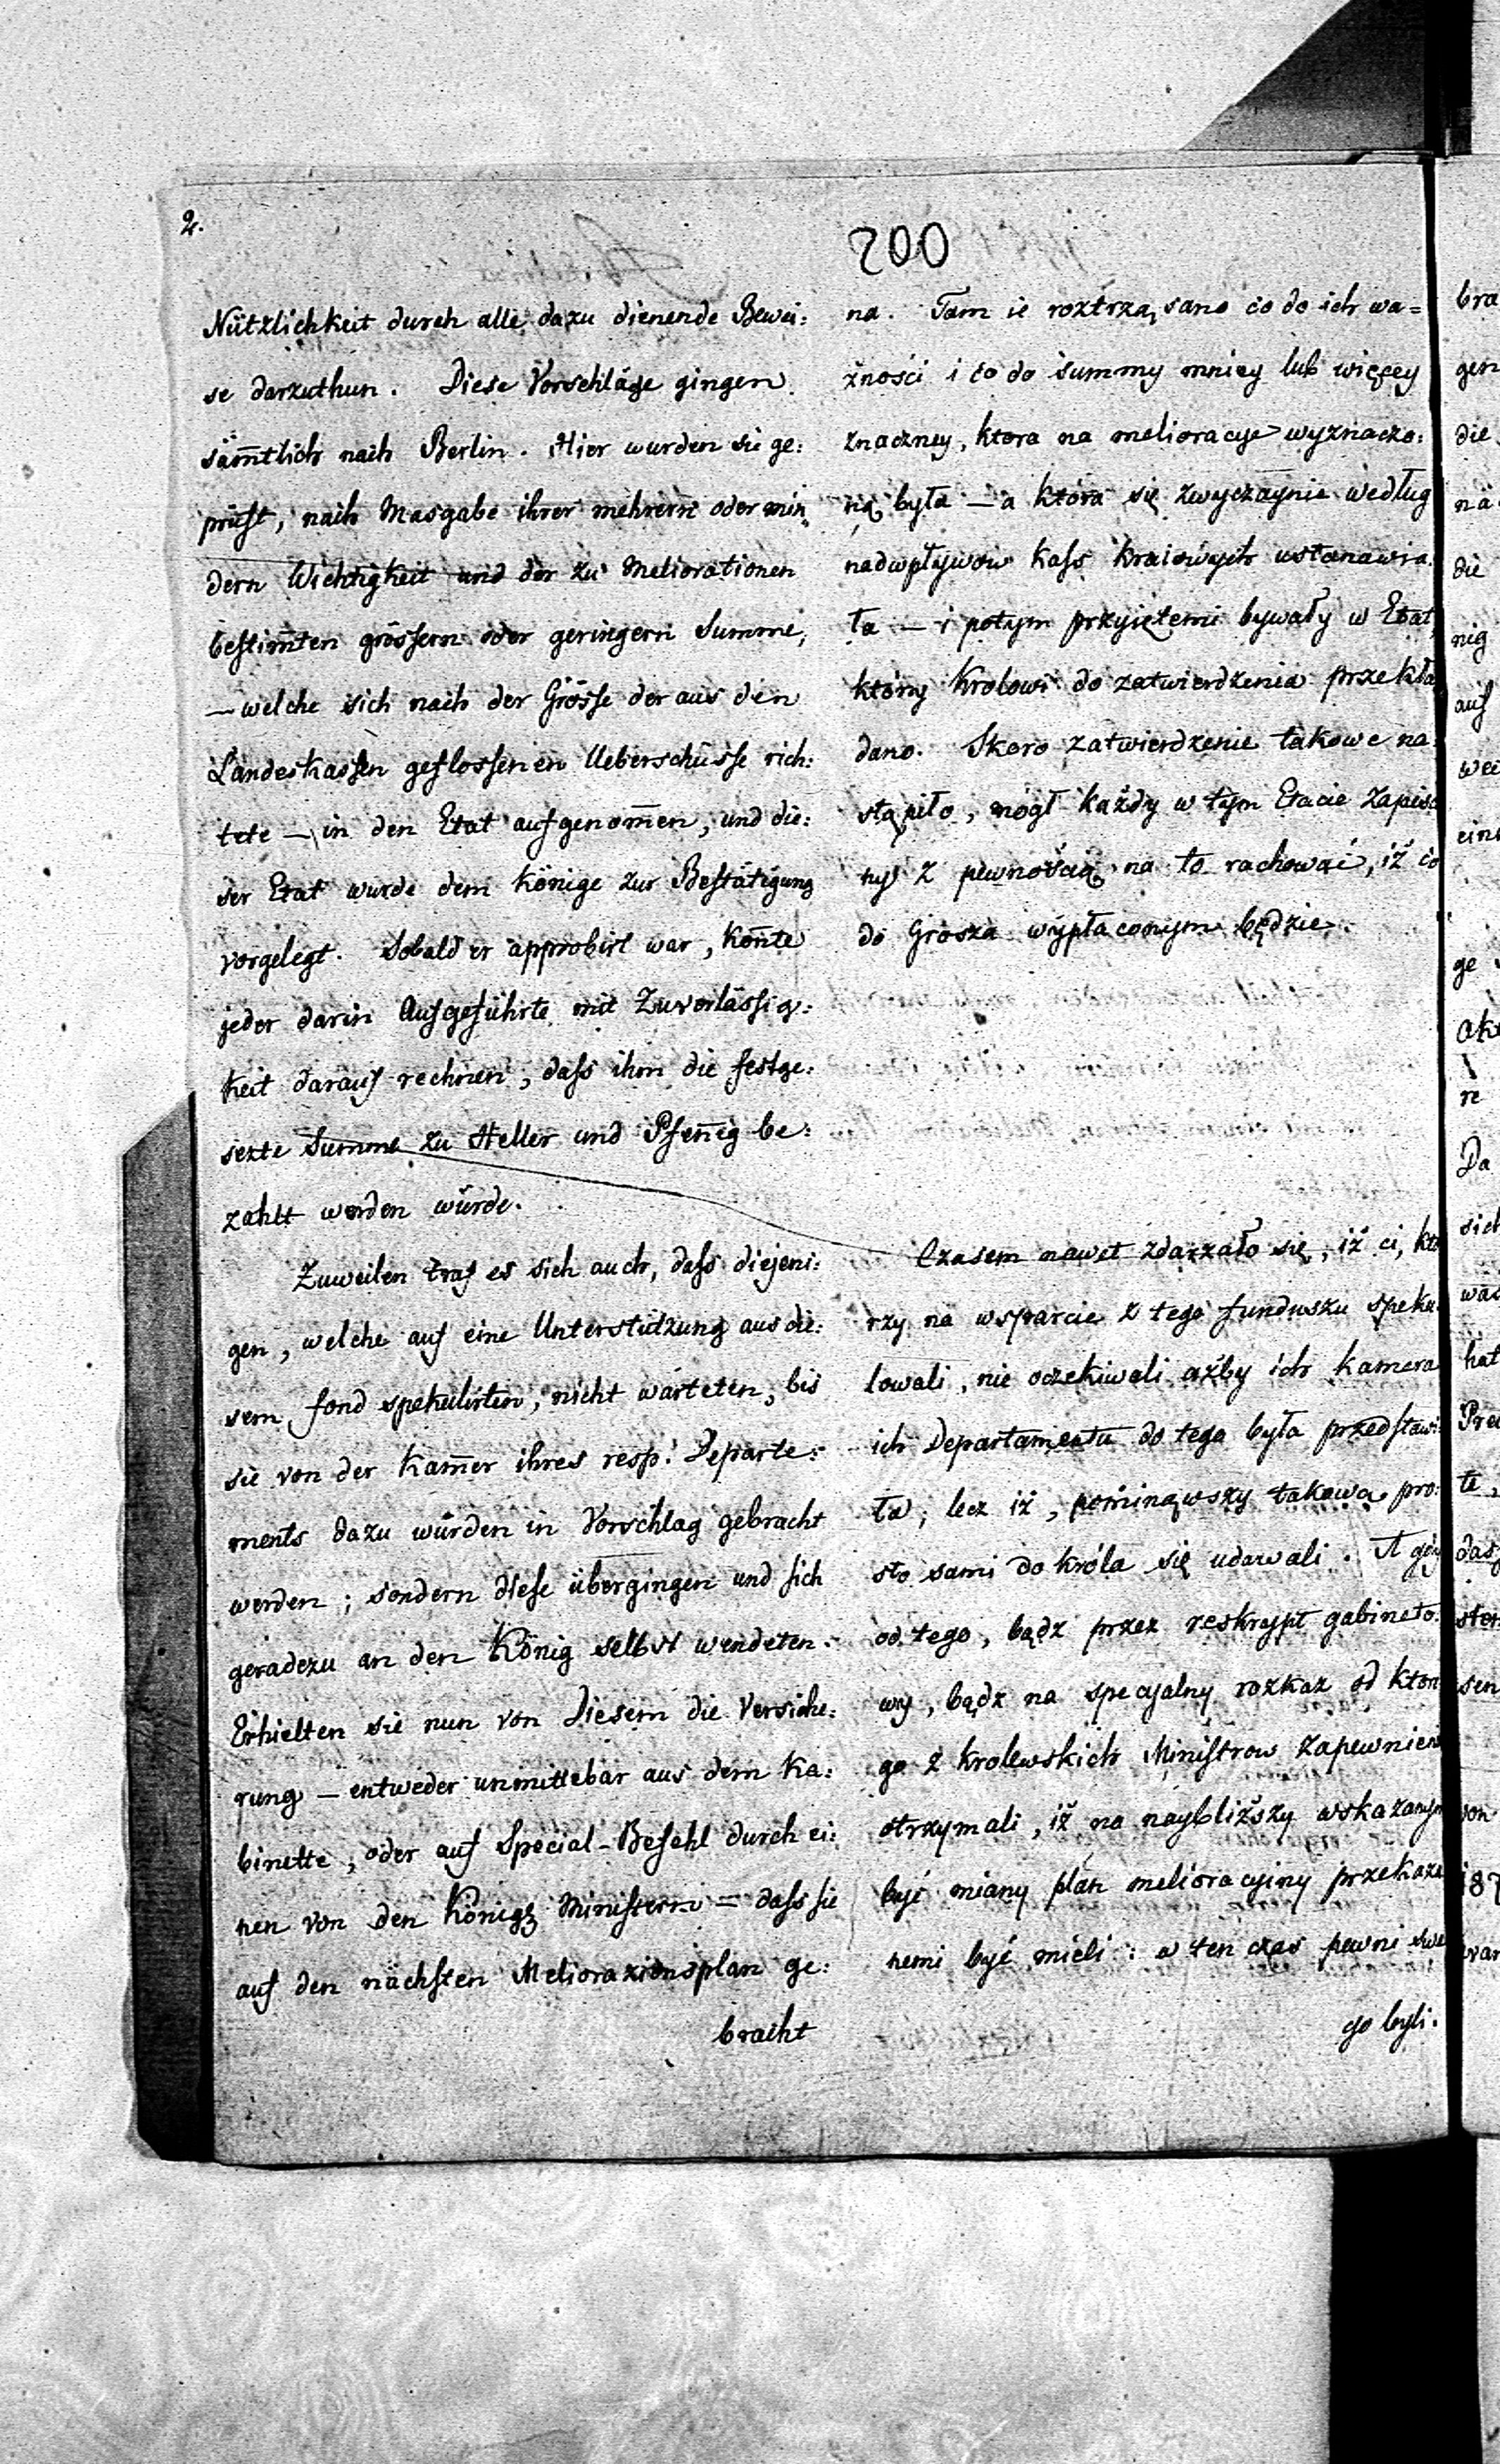 2.
200
Nützlichkeit durch alle dazu dienende Bewei:
se darzuthun. Diese Vorschläge gingen
säm̄tlich nach Berlin. Hier wurden sie ge:
prüft, nach Masgabe ihrer mehrern oder min
dern Wichtigkeit und der zu Meliorationen
bestim̄ten grössern oder geringern Summe,
— welche sich nach der Grösse der aus den
Landeskassen geflossenen Ueberschüsse rich:
tete — in den Etat aufgenom̄en, und die:
ser Etat wurde dem Könige zur Bestätigung
vorgelegt. Sobald er approbirt war, kon̄te
jeder darin Aufgeführte mit Zuverlässig:
keit darauf rechnen, dass ihm die festge:
sezte Summe zu Heller und Pfen̄ig be:
zahlt werden würde.
Zuweilen traf es sich auch, dass diejeni:
gen, welche auf eine Unterstützung aus die:
sem fond spekulirten, nicht warteten, bis
sie von der Kam̄er ihres resp. Departe:
ments dazu würden in Vorschlag gebracht
werden; sondern diese übergingen und sich
geradezu an den König selbst wendeten.
Erhielten sie nun von Diesem die Versiche:
rung — entweder unmittebar aus dem Ka:
binette, oder auf Special-Befehl durch ei:
nen von den Königl Ministern — dass sie
auf den nächsten Meliorazionsplan ge:
bracht
na. Tam ie roztrząsano co do ich wa=
żności i co do summy mniey lub więcey
znaczney, ktora na melioracye wyznaczo:
ną była — a która się zwyczaynie według
nadwpływow kass kraiowych ustanawia:
ła — i potym przyiętemi bywały w Etat,
który Krolowi do zatwierdzenia przekła
dano. Skoro zatwierdzenie takowe na:
stąpiło, mógł każdy w tym Etacie zapisa
ny z pewnością na to rachować, iż co
do Grosza wypłaconym będzie.
Czasem nawet zdarzało się, iż ci, kto
rzy na wsparcie z tego funduszu speku
lowali, nie oczekiwali ażby ich kamera
ich Departamentu do tego była przedstawi:
ła; lecz iż, pominąwszy takową pro:
sto sami do króla się udawali. A gdy
od tego, bądź przez reskrypt gabineto:
wy, bądź na specyalny rozkaz od ktore
go z krolewskich Ministrow zapewnieni
otrzymali, iż na naybliższy wskazanym
być miany plan melioracyiny przekaza
nemi być mieli: w ten czas pewni swe
go byli.